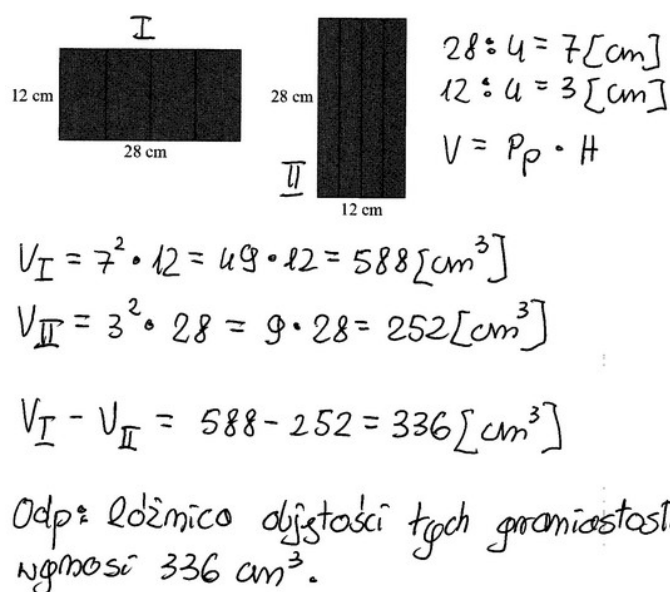 I
12 cm
28 cm
28 cm
II
12 cm
28 : 4 = 7 [cm]
12 : 4 = 3 [cm]
V = Pp · H
V_I = 7² · 12 = 49 · 12 = 588 [cm³]
V_II = 3² · 28 = 9 · 28 = 252 [cm³]
V_I - V_II = 588 - 252 = 336 [cm³]
Odp: Różnica objętości tych graniastosł
wynosi 336 cm³.